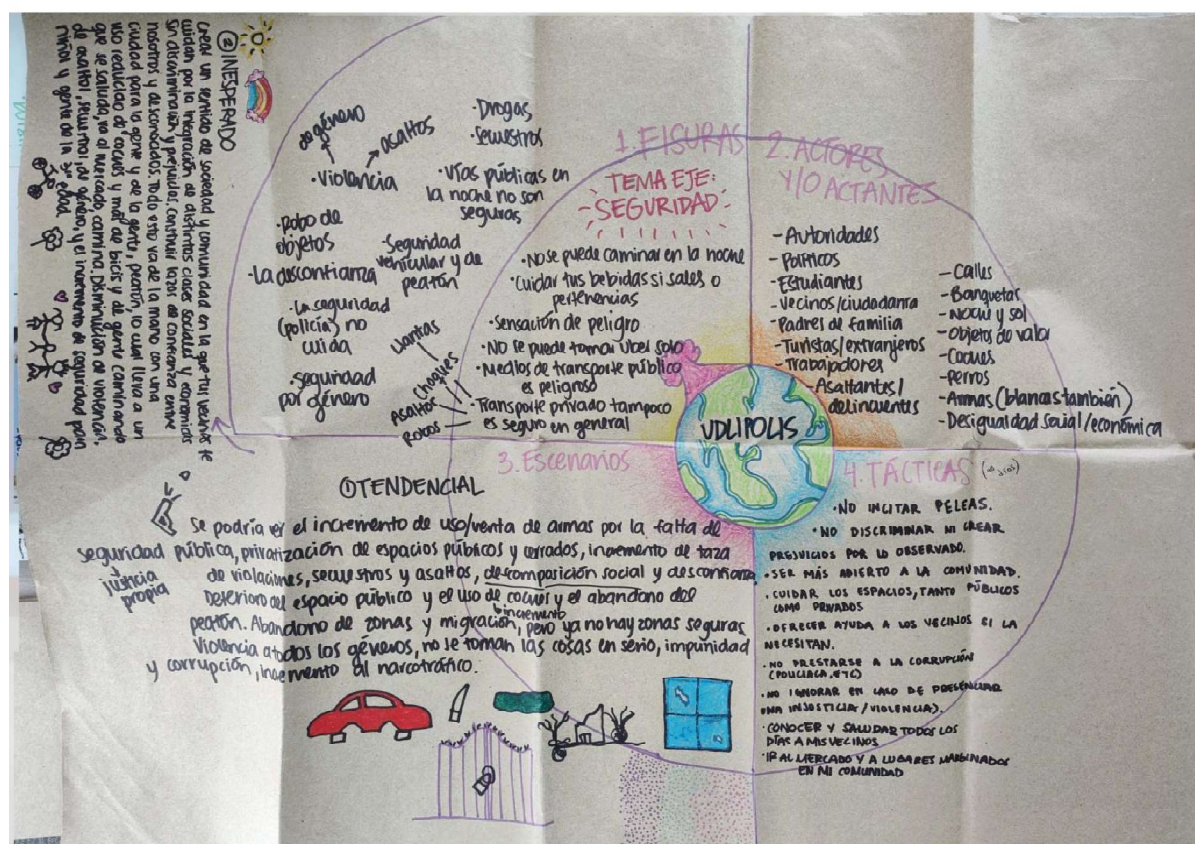 ② INESPERADO
Crear un sentido de sociedad y comunidad en la que tus vecinos te
cuidan por la integración de distintas clases sociales y económicas
sin discriminación y prejuicios, construir lazos de confianza entre
nosotros y desconocidos. Todo esto va de la mano con una
ciudad para la gente y de la gente, peatón, lo cual lleva a un
uso reducido de coches y más de bicis y de gente caminando
que se saluda, va al mercado, camina. Disminución de violencia,
de asaltos, secuestros, género, y el incremento de seguridad para
niños y gente de la 3ra edad
de género
asaltos
·Violencia
·Drogas
·Secuestros
·Vías públicas en
la noche no son
seguras
·Robo de
objetos
·Seguridad
vehicular y de
peatón
-La desconfianza
·La seguridad
(policía) no
cuida
·Seguridad
por género
1. FIGURAS
TEMA EJE:
-SEGURIDAD-
·No se puede caminar en la noche
·Cuidar tus bebidas si sales o
pertenencias
·Sensación de peligro
·NO se puede tomar Uber solo
·Medios de transporte público
es peligroso
·Transporte privado tampoco
es seguro en general
Llantas
Choques
Asaltos
Robos
2. ACTORES
Y/O ACTANTES
-Autoridades
-Políticos
-Estudiantes
-Vecinos/ciudadanía
-Padres de familia
-Turistas/extranjeros
-Trabajadores
-Asaltantes/
delincuentes
-Calles
-Banquetas
-Noche y sol
-Objetos de valor
-Coches
-Perros
-Armas (blancas también)
-Desigualdad social/económica
UDLIPOLIS
3. Escenarios
①TENDENCIAL
Se podría ver el incremento de uso/venta de armas por la falta de
seguridad pública, privatización de espacios públicos y cerrados, incremento de taza
justicia
propia
de violaciones, secuestros y asaltos, descomposición social y desconfianza,
Deterioro del espacio público y el uso de coches y el abandono del
incremento
peatón. Abandono de zonas y migración, pero ya no hay zonas seguras
Violencia a todos los géneros, no se toman las cosas en serio, impunidad
y corrupción, incremento al narcotráfico.
4. TÁCTICAS
·NO INCITAR PELEAS.
·NO DISCRIMINAR NI CREAR
PREJUICIOS POR LO OBSERVADO.
·SER MÁS ABIERTO A LA COMUNIDAD.
·CUIDAR LOS ESPACIOS, TANTO PÚBLICOS
COMO PRIVADOS
·OFRECER AYUDA A LOS VECINOS SI LA
NECESITAN.
·NO PRESTARSE A LA CORRUPCIÓN
(POLICIACA, ETC)
·NO IGNORAR EN CASO DE PRESENCIAR
UNA INJUSTICIA/VIOLENCIA).
·CONOCER Y SALUDAR TODOS LOS
DÍAS A MIS VECINOS
·IR AL MERCADO Y A LUGARES MARGINADOS
EN MI COMUNIDAD